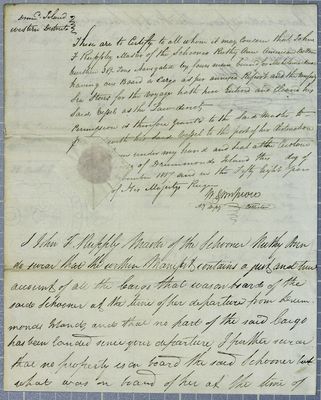 Drumd. Island
western District
These are to Certify to all whom it may concern that John
F Rupley Master of the Schooner Ruthy Ann American
burthen Tons Navigated by four men bound to
having on Board a Cargo as per annexed Report and the necessary
Sea Stores for the Voyage hath here Entered and Cleared his
Said Vessel as the Law directs
Permission is therefore Granted to the Said Master to
with his Said Vessel to the port of his destination
Given under my hand and Seal at the Custom
of Drummonds Island this day of
1817 and in the Fifty Eight Year
of His Majestys Reign
I John F. Rupply Master of the Schooner Ruthy Ann
do swear that the within Manifest contains a just and true
account of all the Cargo that was on board of the
said Schooner at the time of her departure from Drum-
monds Island, and that no part of the said Cargo
has been landed since your departure, I further swear
that no property is on board the said Schooner but
what was on board of her at the time of